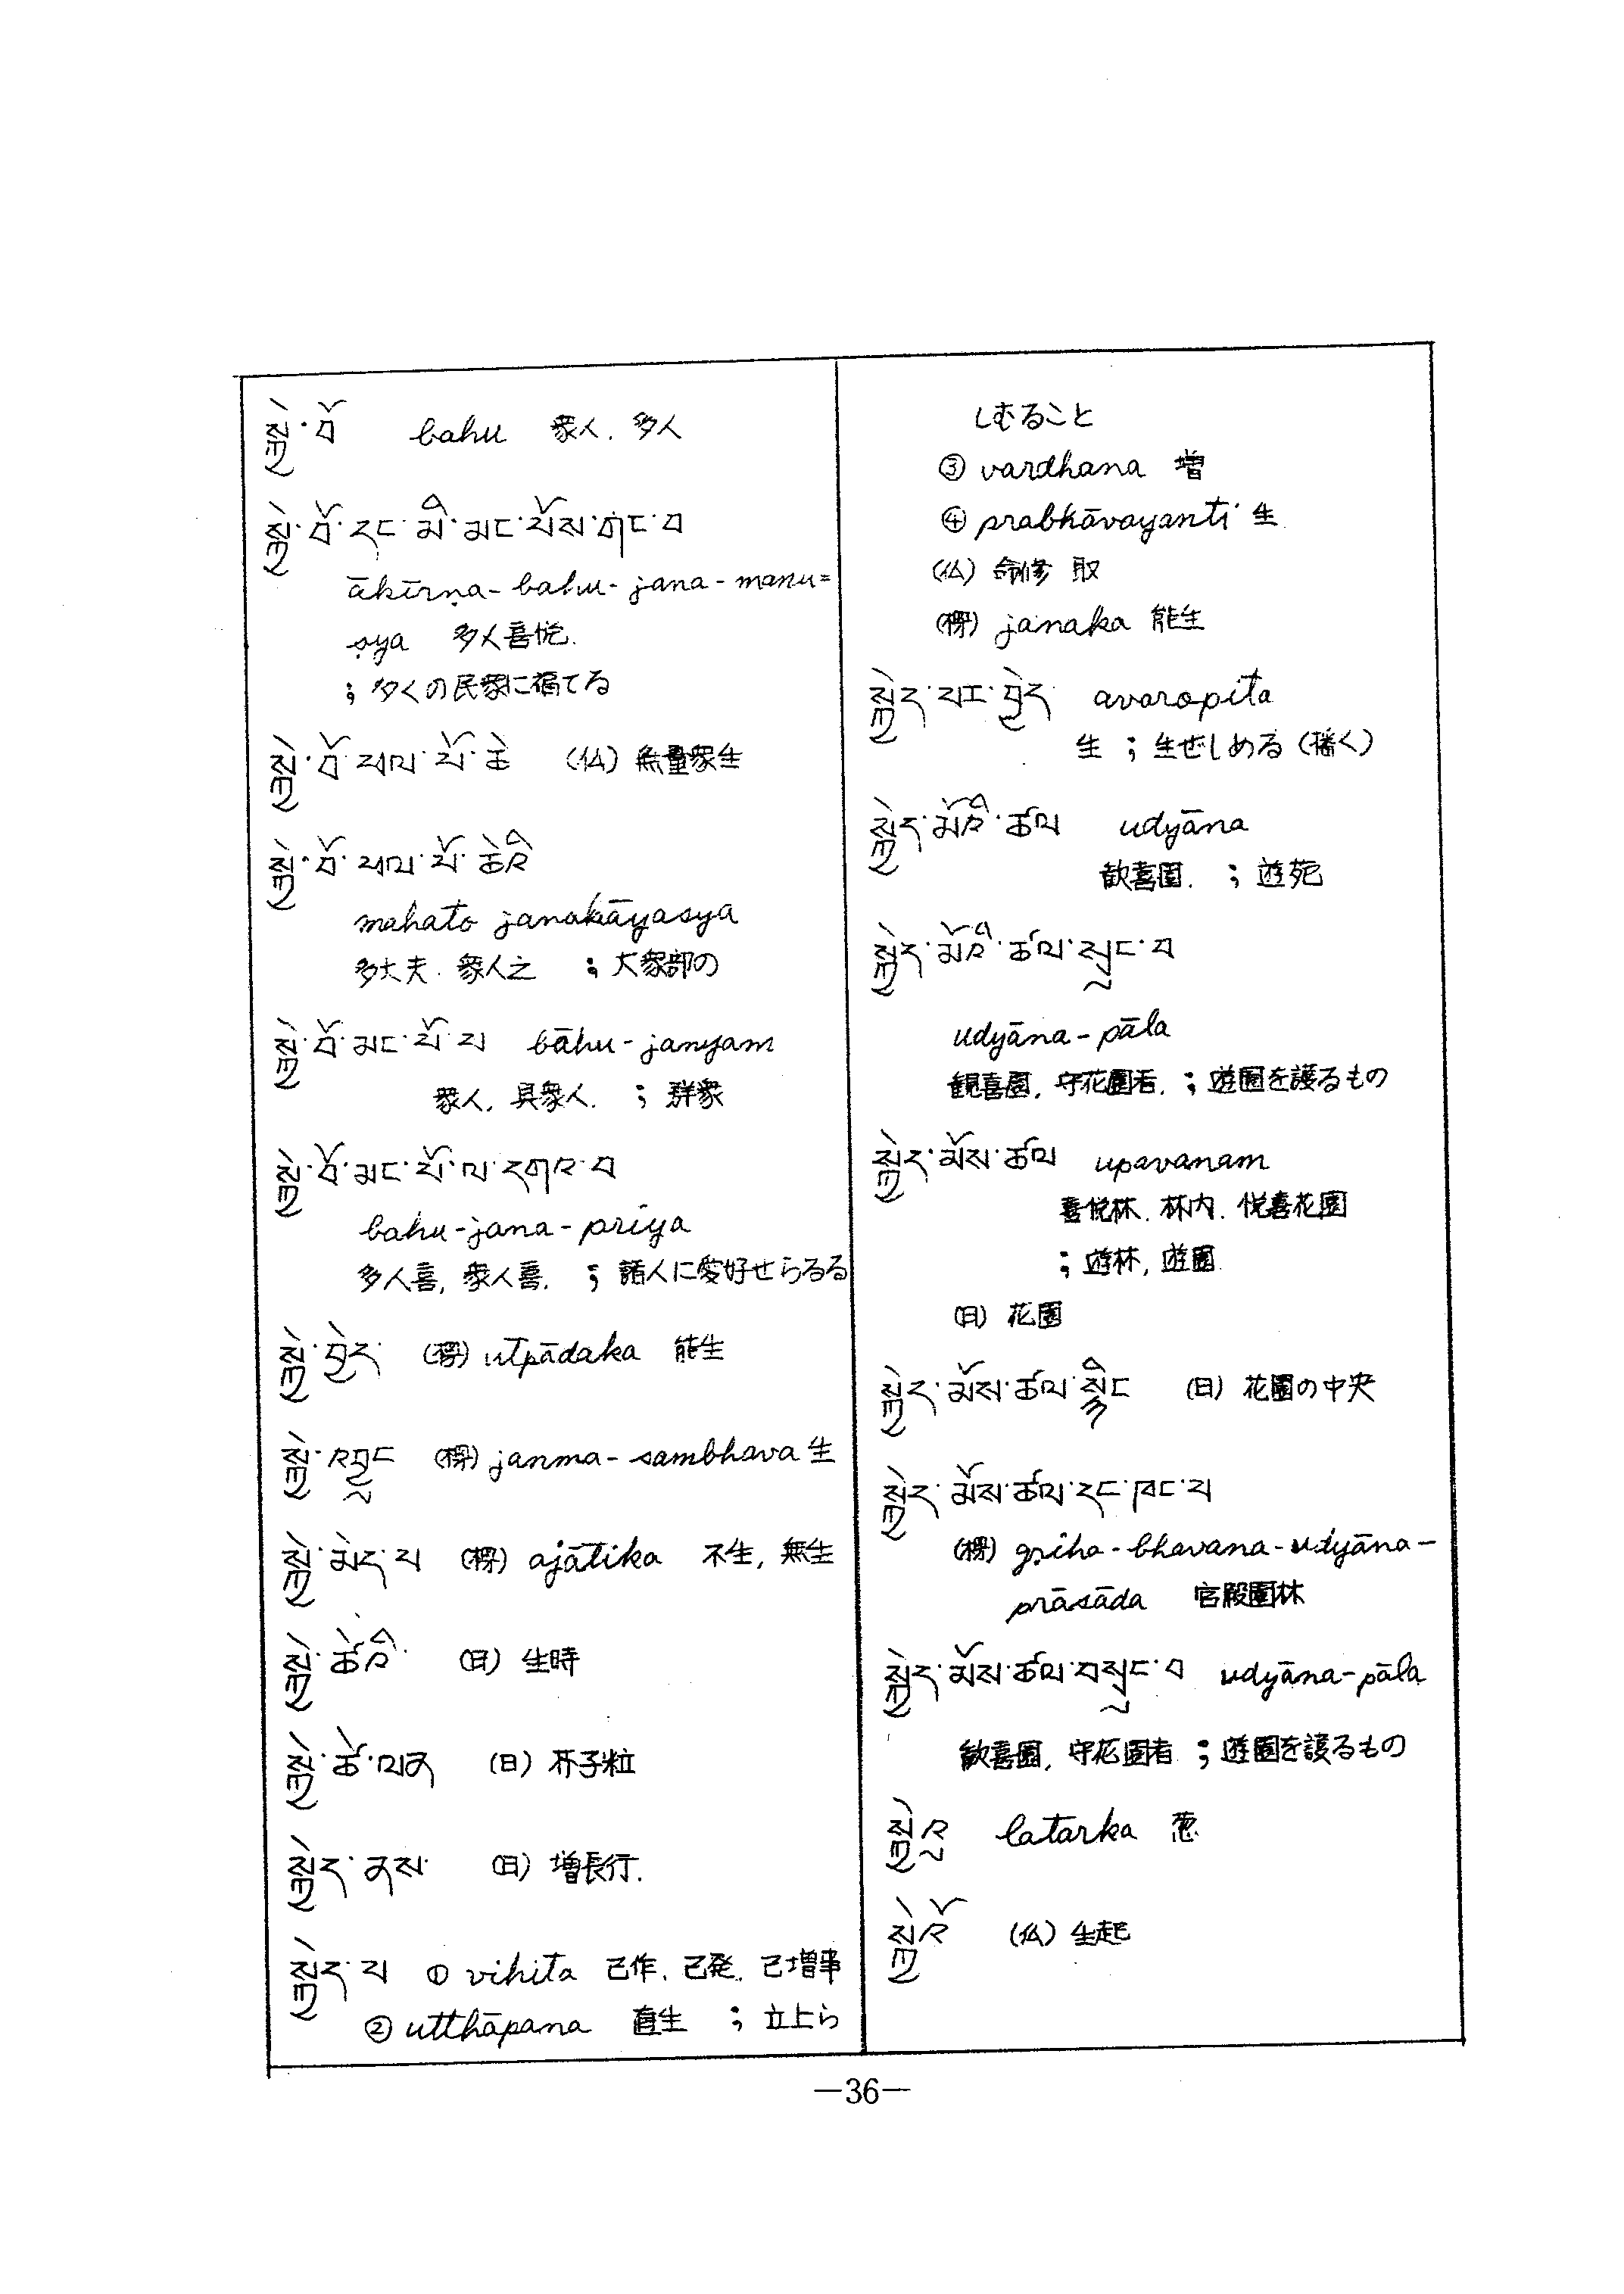 སྐྱེ་བོ bahu 衆人. 多人
སྐྱེ་བོ་དང་མི་མང་པོས་གང་བ
ākīrṇa-bahu-jana-manu=
ṣya 多人喜悦.
; 多くの民衆に福てる
སྐྱེ་བོ་ཕལ་པོ་ཆེ (仏) 無量衆生
སྐྱེ་བོ་ཕལ་པོ་ཆེའི
mahato janakāyasya
多大夫. 衆人之 ; 大衆部の
སྐྱེ་བོ་མང་པོ་པ bāhu-janyam
衆人, 具衆人. ; 群衆
སྐྱེ་བོ་མང་པོ་ལ་དགའ་བ
bahu-jana-priya
多人喜, 衆人喜. ; 諸人に愛好せらるる
སྐྱེ་བྱེད་ (梵) utpādaka 能生
སྐྱེ་འབྱུང (梵) janma-sambhava 生
སྐྱེ་མེད་པ (梵) ajātika 不生, 無生
སྐྱེ་ཚེའི་ (日) 生時
སྐྱེ་ཚེ་ལན (日) 芥子粒
སྐྱེད་ནས་ (日) 増長行.
སྐྱེད་པ ① vihita 己作, 己発, 己増事
② utthāpana 直生 ; 立上ら
しむること
③ vardhana 増
④ prabhāvayanti 生
(仏) 命修 取
(梵) janaka 能生
སྐྱེད་པར་བྱེད avaropita
生 ; 生ぜしめる (播く)
སྐྱེད་མོའི་ཚལ udyāna
歓喜園. ; 遊苑
སྐྱེད་མོའི་ཚལ་སྲུང་བ
udyāna-pāla
観喜園, 守花園者, ; 遊園を護るもの
སྐྱེད་མོས་ཚལ upavanam
喜悦林. 林内. 悦喜花園
; 遊林, 遊園
(日) 花園
སྐྱེད་མོས་ཚལ་སྙིང (日) 花園の中央
སྐྱེད་མོས་ཚལ་དང་ཁང་པ
(梵) gṛiha-bhavana-udyāna-
prāsāda 宮殿園林
སྐྱེད་མོས་ཚལ་བསྲུང་བ udyāna-pāla
歓喜園, 守花園者 ; 遊園を護るもの
latarka 葱
སྐྱེའོ (仏) 生起
—36—